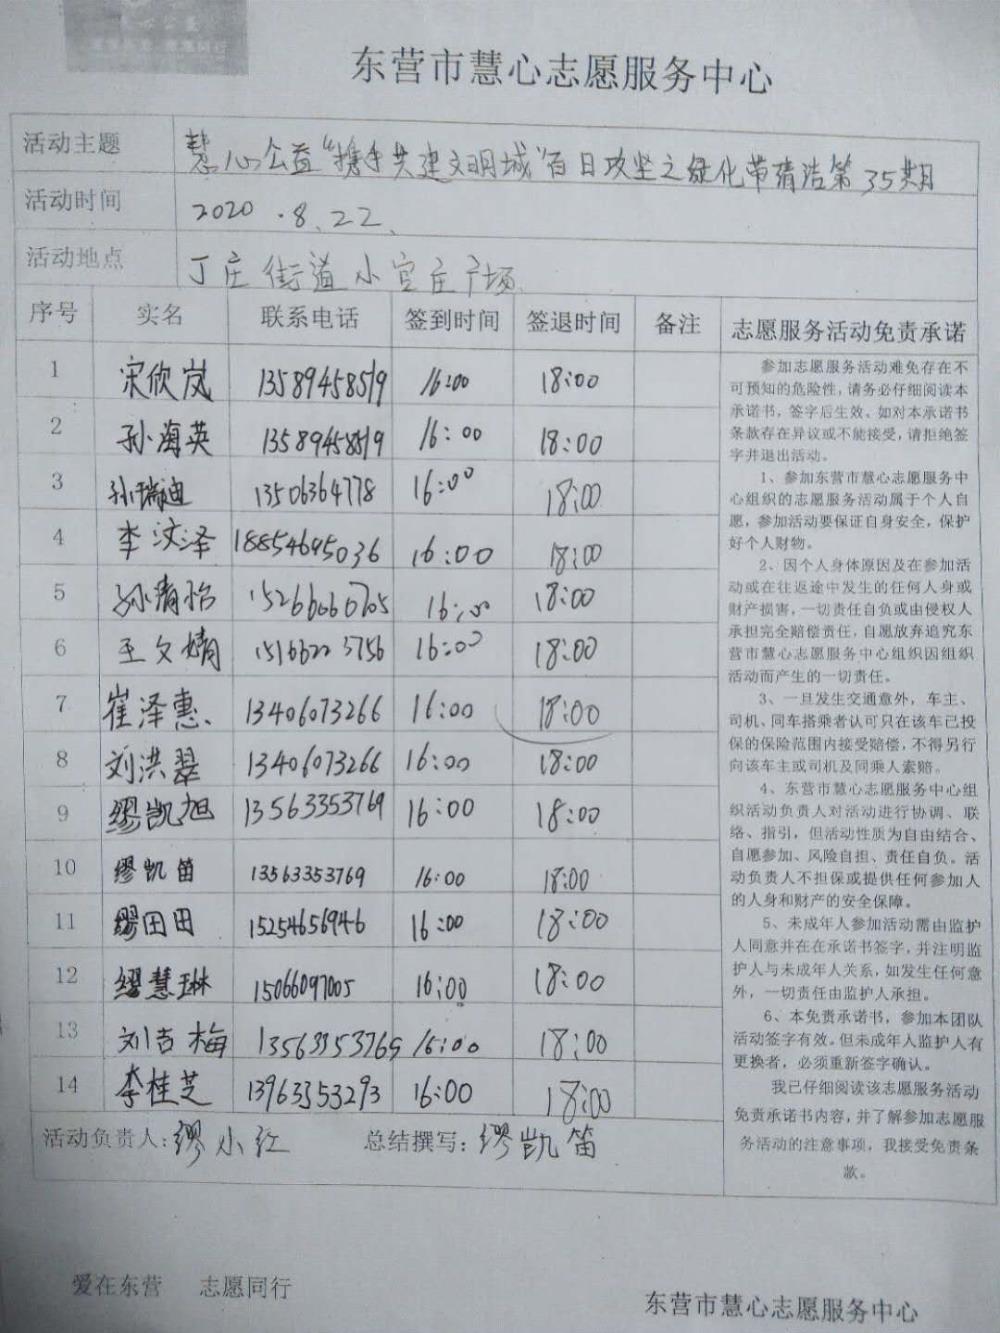 东营市慧心志愿服务中心
活动主题 慧心公益“携手共建文明城”百日攻坚之绿化带清洁第35期
活动时间 2020.8.22.
活动地点 丁庄街道小官庄广场
序号 实名 联系电话 签到时间 签退时间 备注 志愿服务活动免责承诺
1 宋欣岚 13589458519 16:00 18:00
2 孙海英 13589458519 16:00 18:00
3 孙瑞迪 13506364778 16:00 18:00
4 李汶泽 18854695036 16:00 18:00
5 孙清怡 15266060705 16:00 18:00
6 王文婧 15166223756 16:00 18:00
7 崔泽惠 13406073266 16:00 18:00
8 刘洪翠 13406073266 16:00 18:00
9 缪凯旭 13563353769 16:00 18:00
10 缪凯笛 13563353769 16:00 18:00
11 缪田田 15254656946 16:00 18:00
12 缪慧琳 15066097005 16:00 18:00
13 刘吉梅 13563353769 16:00 18:00
14 李桂芝 13963353293 16:00 18:00
活动负责人:缪小红 总结撰写:缪凯笛
参加志愿服务活动难免存在不
可预知的危险性,请务必仔细阅读本
承诺书,签字后生效。如对本承诺书
条款存在异议或不能接受,请拒绝签
字并退出活动。
1、参加东营市慧心志愿服务中
心组织的志愿服务活动属于个人自
愿,参加活动要保证自身安全,保护
好个人财物。
2、因个人身体原因及在参加活
动或在往返途中发生的任何人身或
财产损害,一切责任自负或由侵权人
承担完全赔偿责任,自愿放弃追究东
营市慧心志愿服务中心组织因组织
活动而产生的一切责任。
3、一旦发生交通意外,车主、
司机、同车搭乘者认可只在该车已投
保的保险范围内接受赔偿,不得另行
向该车主或司机及同乘人索赔。
4、东营市慧心志愿服务中心组
织活动负责人对活动进行协调、联
络、指引,但活动性质为自由结合、
自愿参加、风险自担、责任自负。活
动负责人不担保或提供任何参加人
的人身和财产的安全保障。
5、未成年人参加活动需由监护
人同意并在在承诺书签字,并注明监
护人与未成年人关系,如发生任何意
外,一切责任由监护人承担。
6、本免责承诺书,参加本团队
活动签字有效。但未成年人监护人有
更换者,必须重新签字确认。
我已仔细阅读该志愿服务活动
免责承诺书内容,并了解参加志愿服
务活动的注意事项,我接受免责条
款。
爱在东营 志愿同行
东营市慧心志愿服务中心